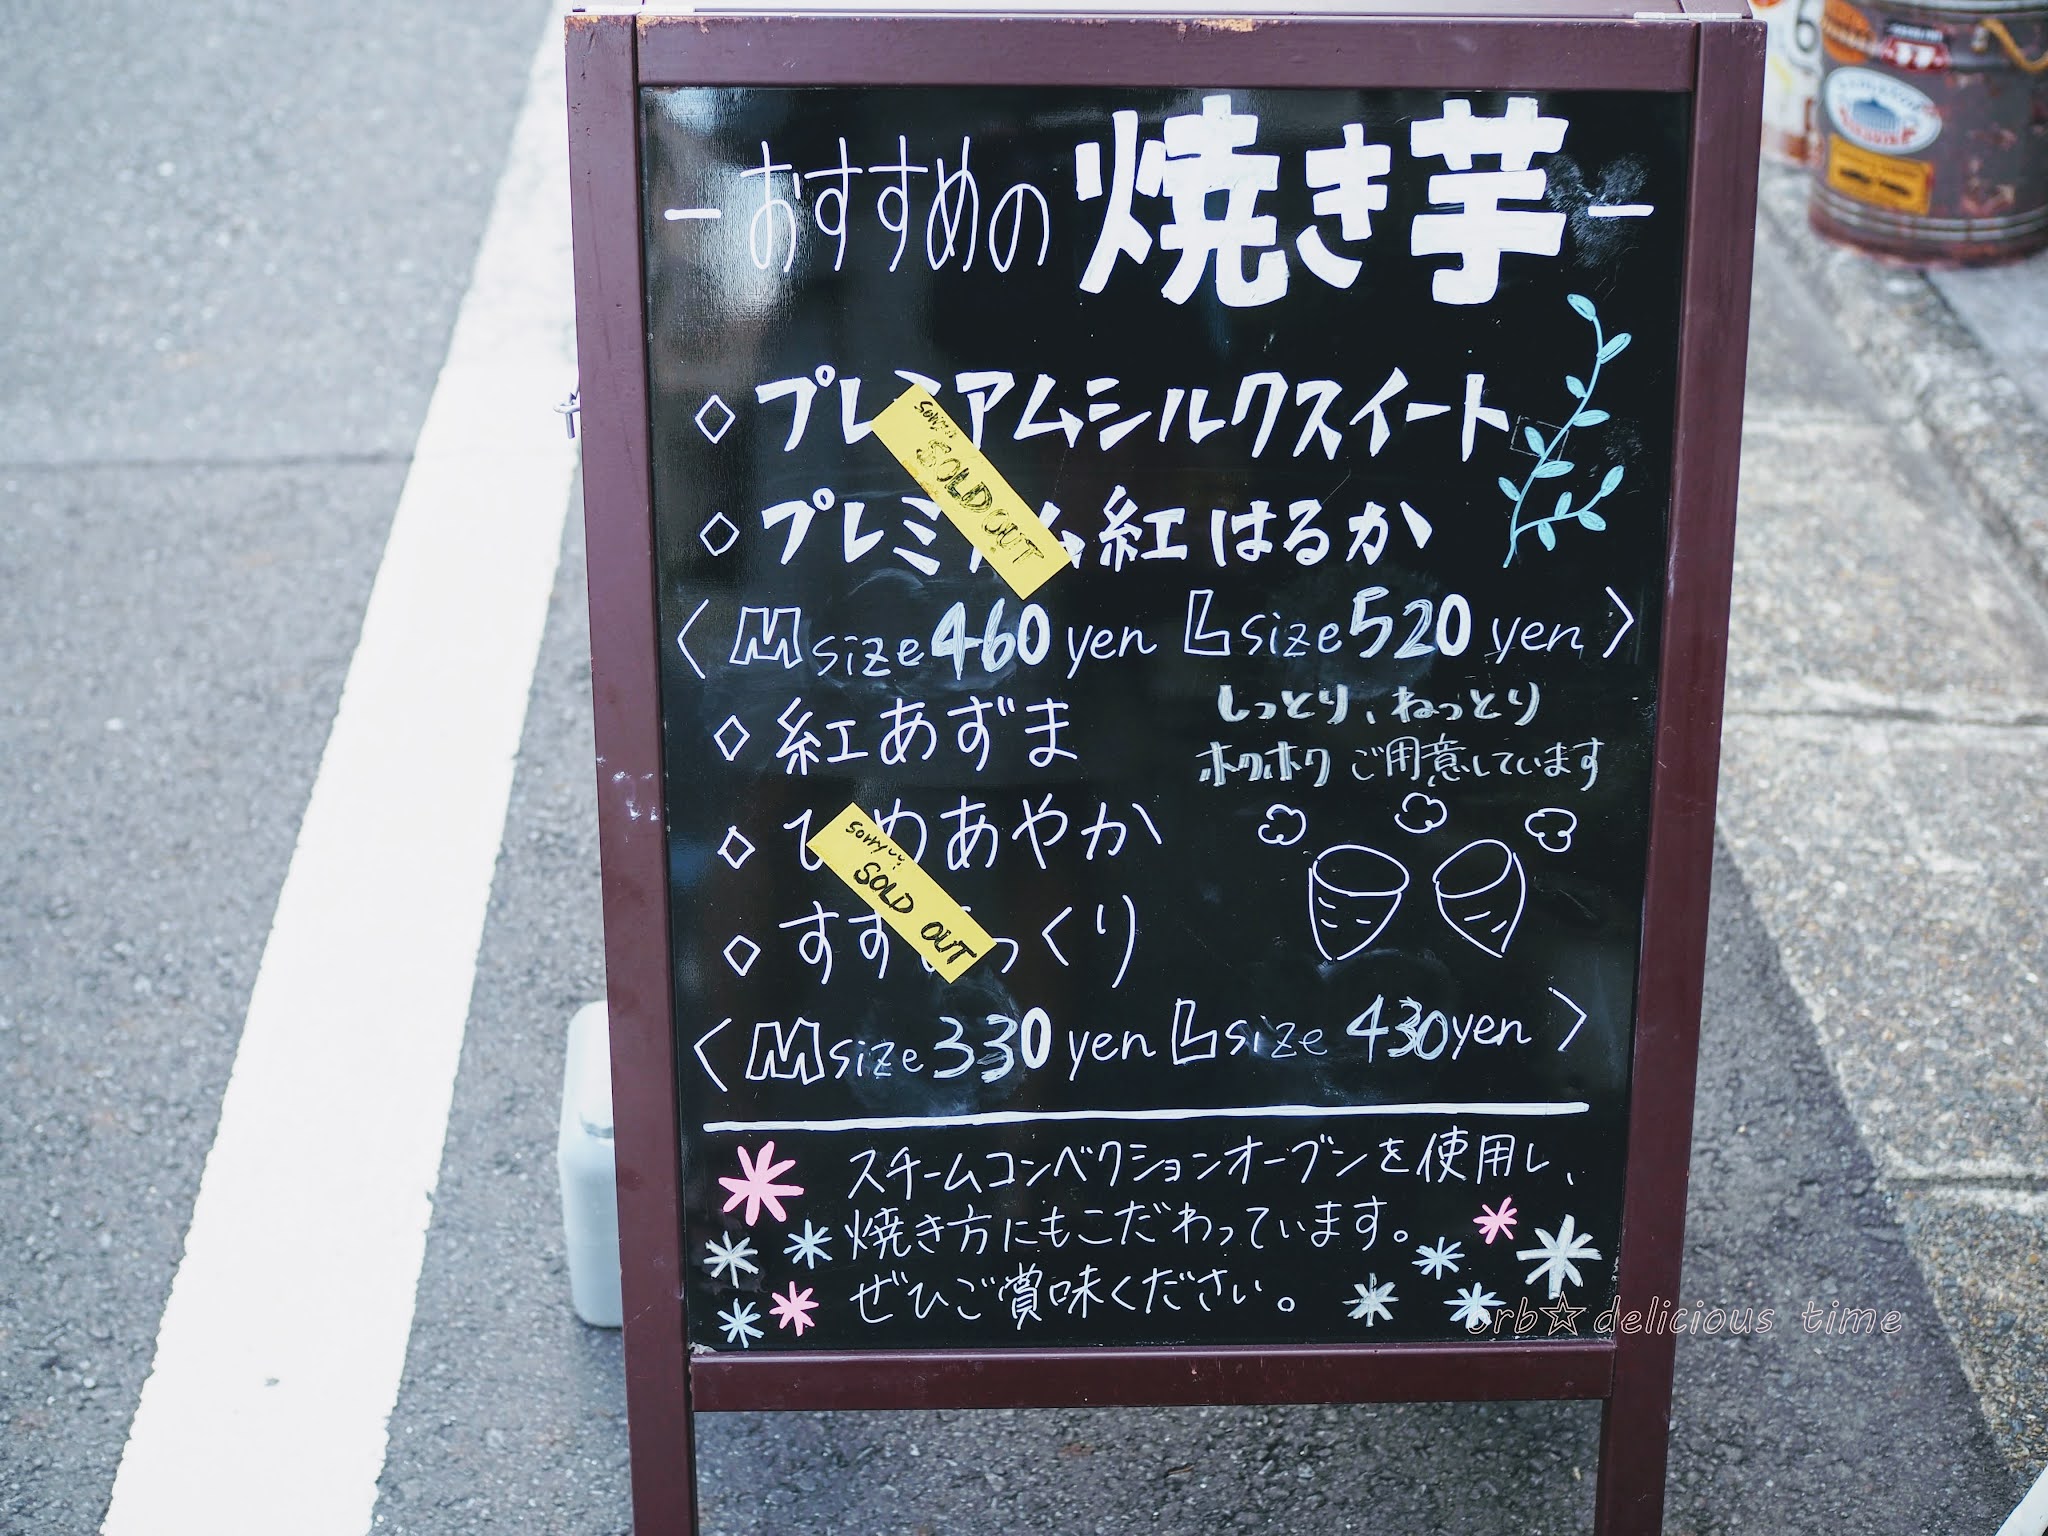 -おすすめの焼き芋-
◇プレミアムシルクスイート
◇プレミアム紅はるか
sorry SOLD OUT
〈Msize460yen Lsize520yen〉
◇紅あずま
しっとり、ねっとり
ホクホクご用意しています
◇ひめあやか
sorry SOLD OUT
◇すずほっくり
〈Msize330yen Lsize430yen〉
スチームコンベクションオーブンを使用し、
焼き方にもこだわっています。
ぜひご賞味ください。
orb☆delicious time